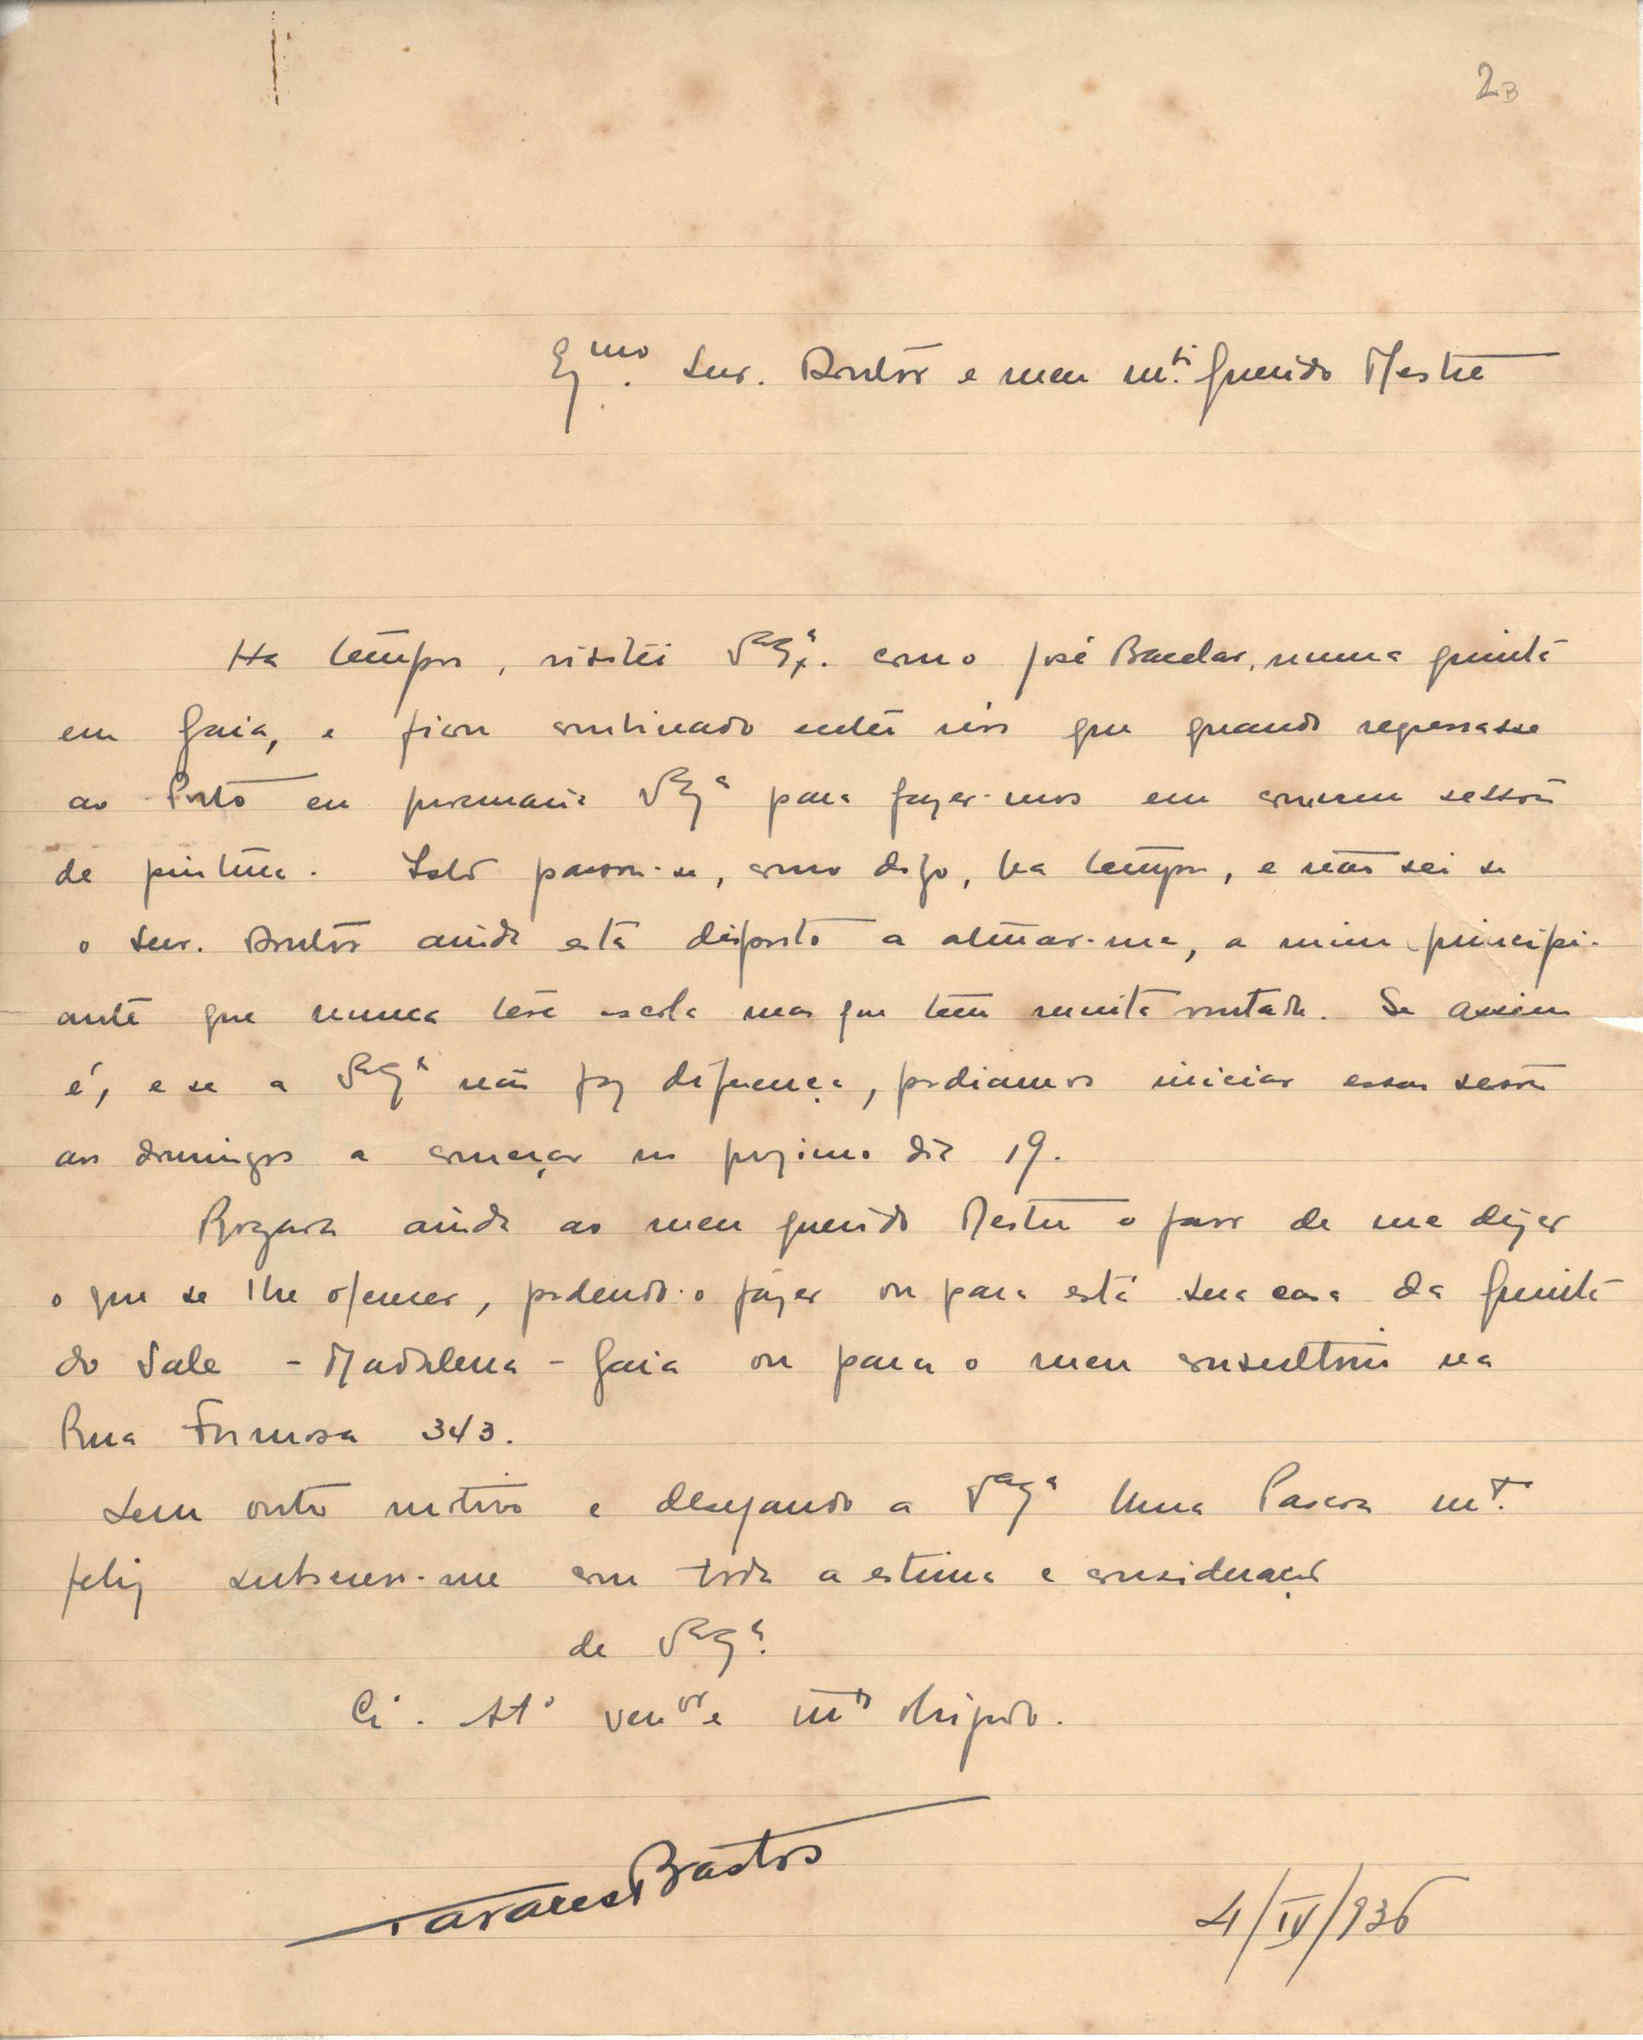 2B
Exmo. Snr. Doutôr e meu mto. Querido Mestre
Ha tempos, visitei VaExa. com o José Bacelar, numa quinta
em Gaia, e ficou combinado entre nós que quando regressasse
ao Porto eu procuraria VExa para fazer-mos em comum sessões
de pintura. Isto passou-se, como digo, ha tempos, e não sei se
o Snr. Doutôr ainda está disposto a aturar-me, a mim principi-
ante que nunca teve escola mas que tem muita vontade. Se assim
é, e se a VaExa não faz diferença, podiamos iniciar essas sessões
aos domingos a começar no proximo dia 19.
Rogava ainda ao meu querido Mestre o favor de me dizer
o que se lhe oferecer, podendo-o fazer ou para esta sua casa da Quinta
do Vale - Madalena - Gaia ou para o meu consultorio na
Rua Formosa 343.
Sem outro motivo e desejando a VaExa Uma Pascoa mto.
feliz subscrevo-me com toda a estima e consideração
de VaExa.
Co. Ato venor e mto obrigado.
Tavares Bastos
4/IV/936